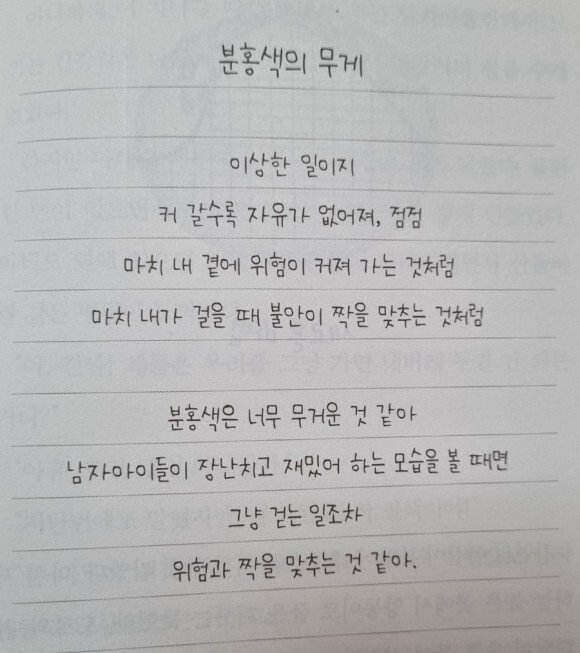 분홍색의 무게
이상한 일이지
커 갈수록 자유가 없어져, 점점
마치 내 곁에 위험이 커져 가는 것처럼
마치 내가 걸을 때 불안이 짝을 맞추는 것처럼
분홍색은 너무 무거운 것 같아
남자아이들이 장난치고 재밌어 하는 모습을 볼 때면
그냥 걷는 일조차
위험과 짝을 맞추는 것 같아.